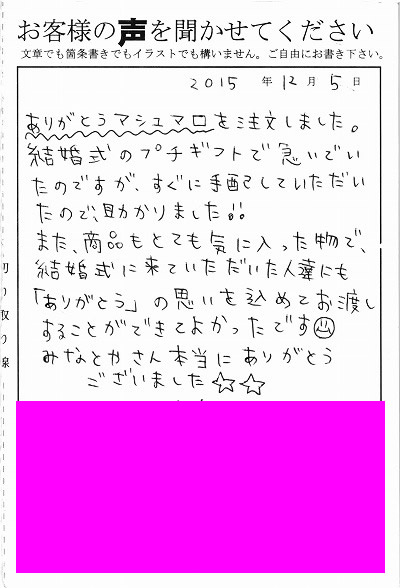 お客様の声を聞かせてください
文章でも箇条書きでもイラストでも構いません。ご自由にお書き下さい。
2015 年 12 月 5 日
ありがとうマシュマロを注文しました。
結婚式のプチギフトで急いでい
たのですが、すぐに手配していただい
たので、助かりました!!
また、商品もとても気に入った物で、
結婚式に来ていただいた人達にも
「ありがとう」の思いを込めてお渡し
することができてよかったです
みなとやさん本当にありがとう
ございました☆☆
切り取り線